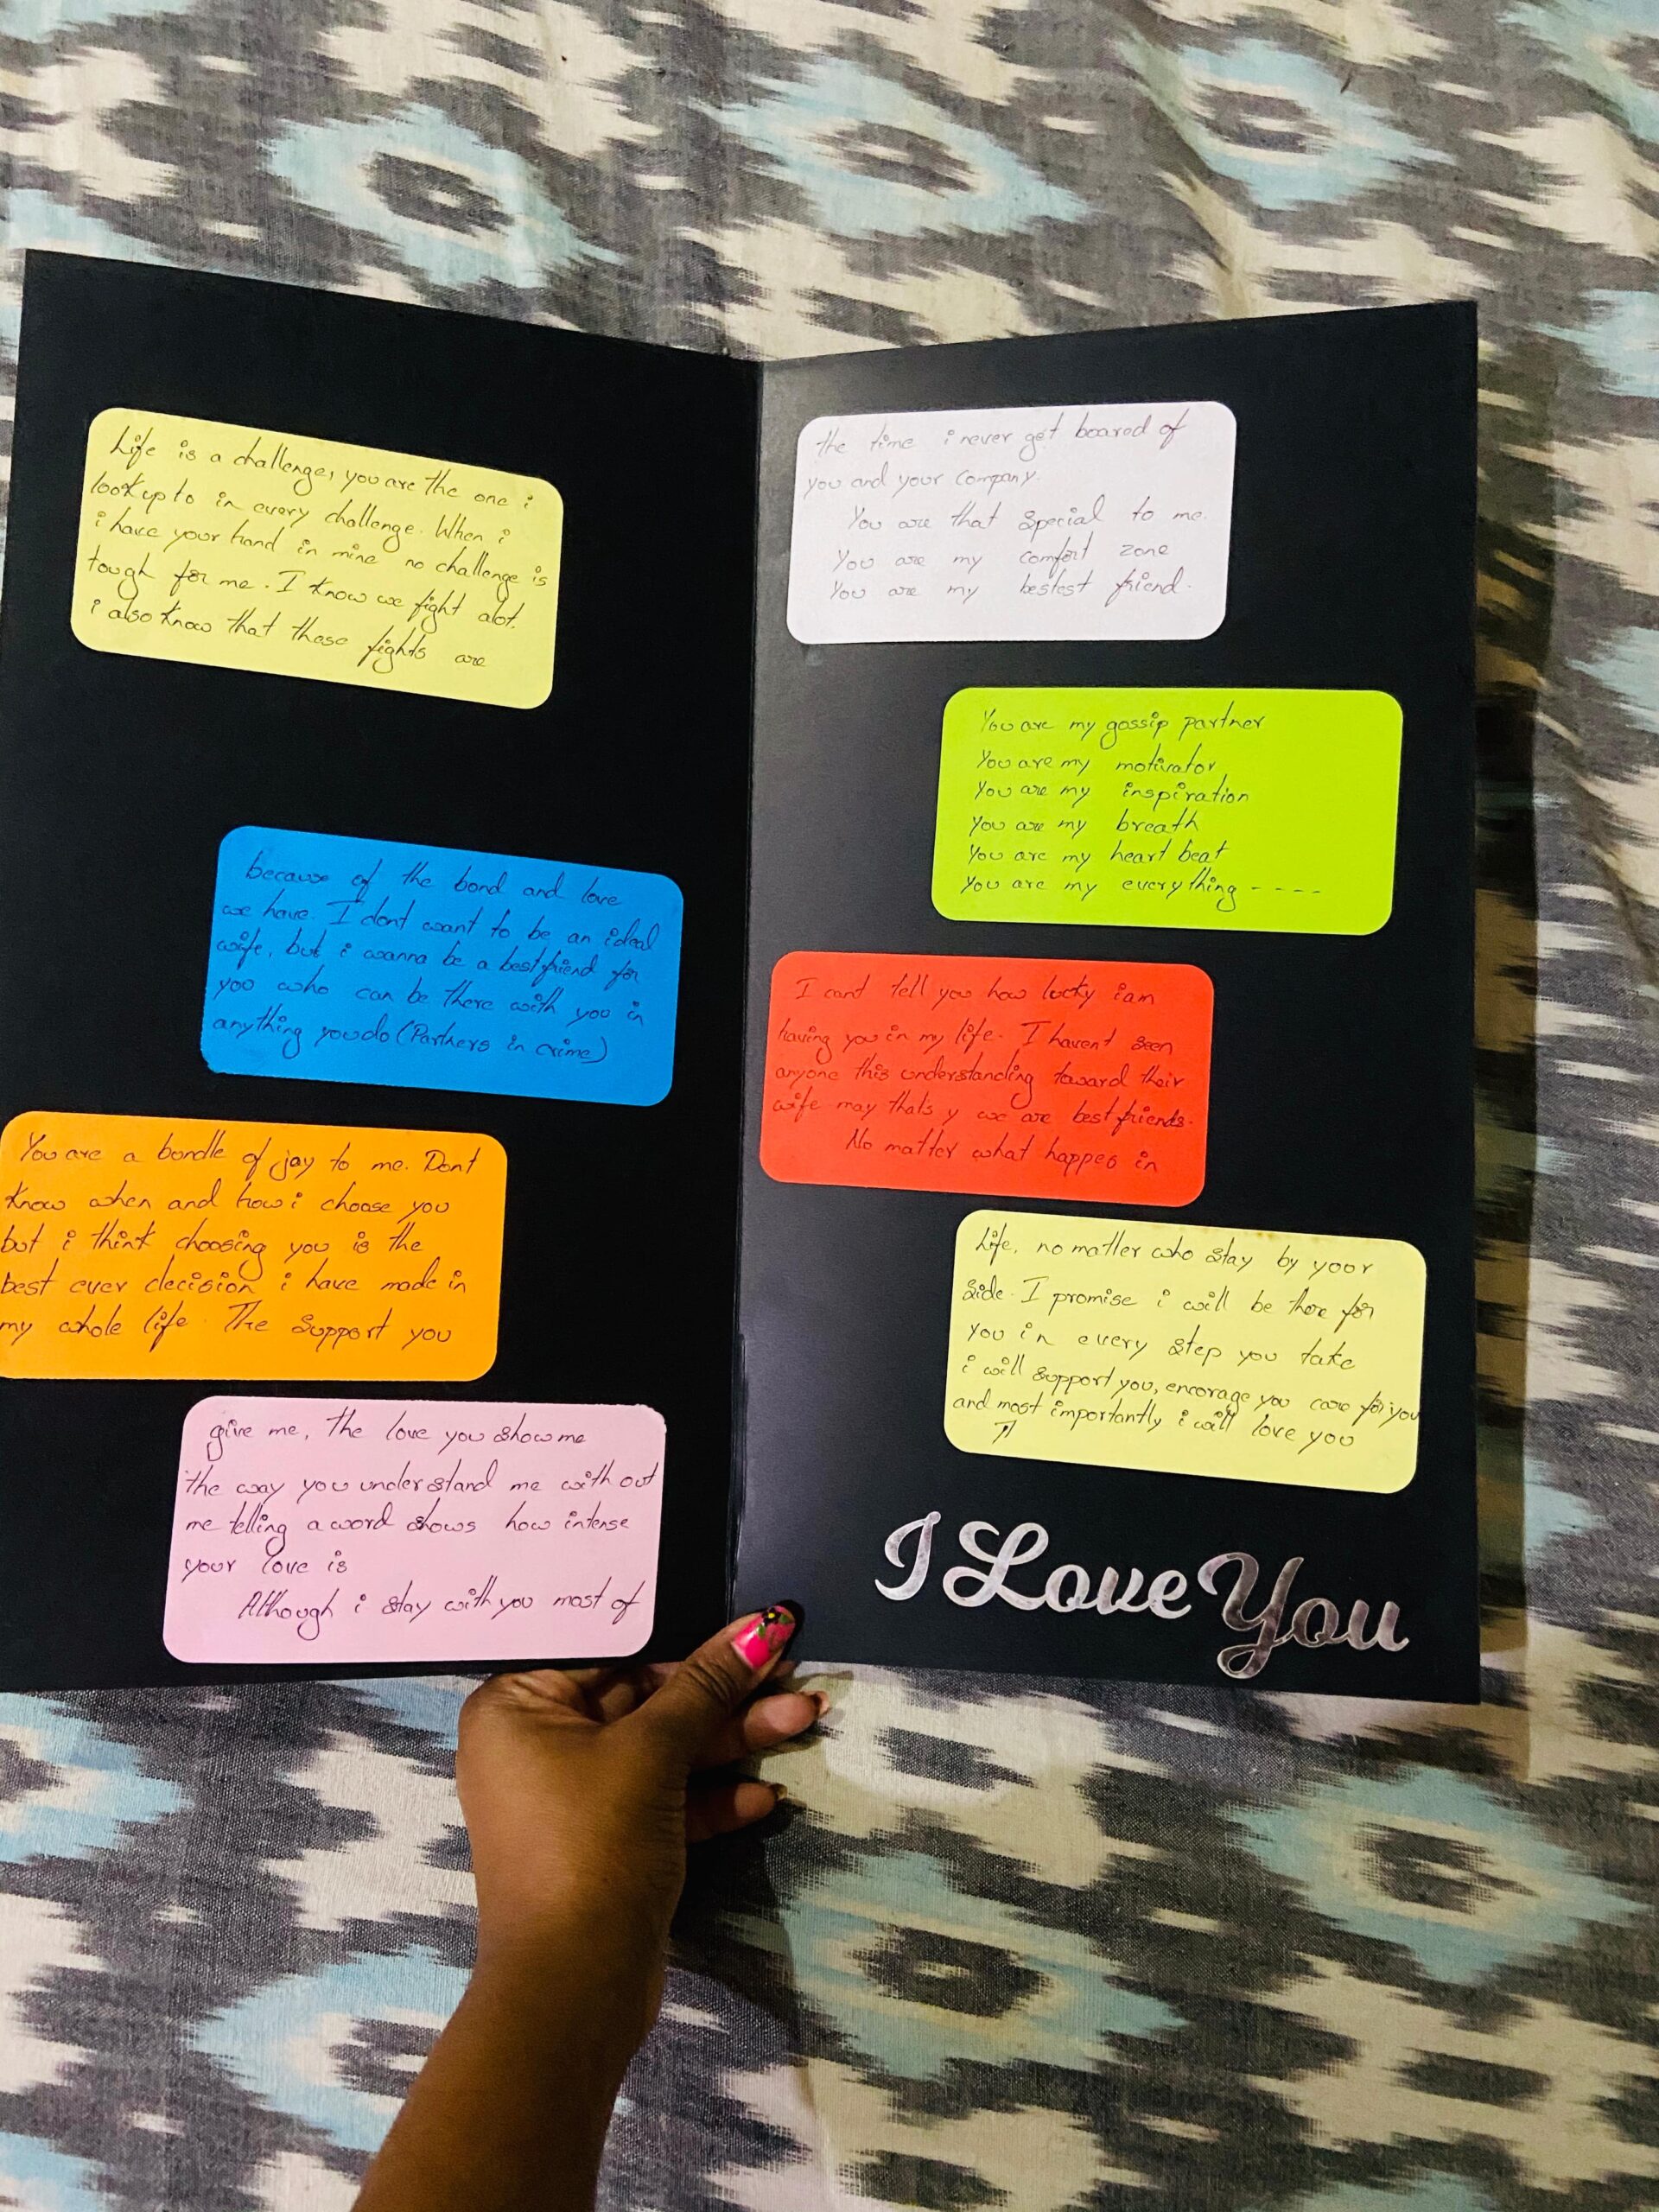 Life is a challenge, you are the one i
look up to in every challenge. When i
i have your hand in mine no challenge is
tough for me. I know we fight alot.
i also know that these fights are
because of the bond and love
we have. I dont want to be an ideal
wife, but i wanna be a best friend for
you who can be there with you in
anything you do (Partners in crime)
You are a bundle of joy to me. Dont
know when and how i choose you
but i think choosing you is the
best ever decision i have made in
my whole life. The support you
give me, the love you show me
the way you understand me with out
me telling a word shows how intense
your love is
Although i stay with you most of
the time i never get boared of
you and your company.
You are that special to me.
You are my comfort zone
You are my bestest friend.
You are my gossip partner
You are my motivator
You are my inspiration
You are my breath
You are my heart beat
You are my everything ----
I cant tell you how lucky i am
having you in my life. I havent seen
anyone this understanding toward their
wife may thats y we are best friends.
No matter what happes in
Life, no matter who stay by your
side. I promise i will be there for
you in every step you take
i will support you, encorage you care for you
and most importantly i will love you
I Love You